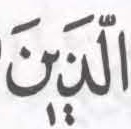 الَّذِيْنَ